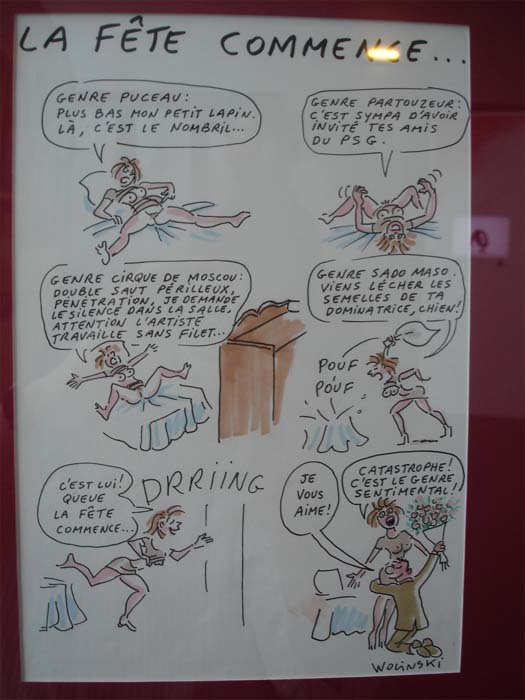 LA FÊTE COMMENCE...
GENRE PUCEAU :
PLUS BAS MON PETIT LAPIN.
LÀ, C'EST LE NOMBRIL...
GENRE PARTOUZEUR :
C'EST SYMPA D'AVOIR
INVITÉ TES AMIS
DU PSG.
GENRE CIRQUE DE MOSCOU :
DOUBLE SAUT PÉRILLEUX,
PENÉTRATION, JE DEMANDE
LE SILENCE DANS LA SALLE,
ATTENTION L'ARTISTE
TRAVAILLE SANS FILET...
GENRE SADO MASO.
VIENS LÉCHER LES
SEMELLES DE TA
DOMINATRICE, CHIEN!
POUF
POUF
C'EST LUI!
QUEUE
LA FÊTE
COMMENCE...
DRRIING
JE
VOUS
AIME!
CATASTROPHE!
C'EST LE GENRE
SENTIMENTAL!
WOLINSKI